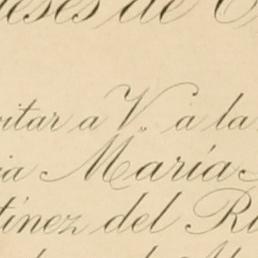 eses de
itar a V. a la
ia María
tínez del R